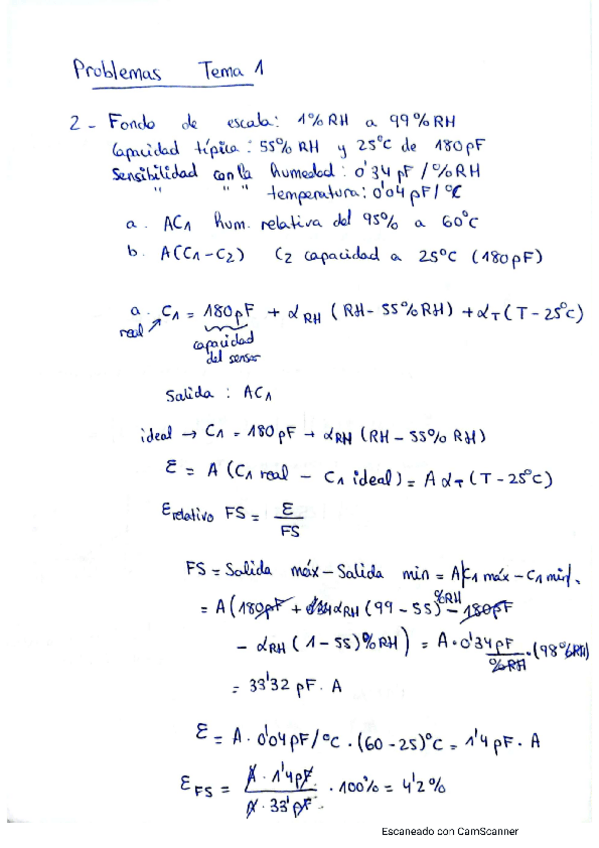 Problemas Tema 1
2 - Fondo de escala: 1% RH a 99% RH
Capacidad típica: 55% RH y 25ºC de 180pF
Sensibilidad con la humedad: 0'34 pF/%RH
" " " temperatura: 0'04 pF/ºC
a. AC1 hum. relativa del 95% a 60ºC
b. A(C1-C2) C2 capacidad a 25ºC (180pF)
a. C1 = 180pF + αRH (RH - 55%RH) + αT (T - 25ºC)
real
capacidad
del sensor
Salida : AC1
ideal → C1 = 180pF → αRH (RH - 55% RH)
Ɛ = A (C1 real - C1 ideal) = A αT (T - 25ºC)
Ɛrelativo FS = Ɛ
FS
FS = Salida máx - Salida min = A(C1 máx - C1 min).
= A(180pF + αRH (99 - 55)%RH - 180pF
- αRH (1 - 55)%RH) = A · 0'34 pF/%RH · (98%RH)
= 33'32 pF · A
Ɛ = A · 0'04pF/ºC · (60 - 25)ºC = 1'4 pF · A
ƐFS = A · 1'4pF · 100% = 4'2%
A · 33' pF
Escaneado con CamScanner